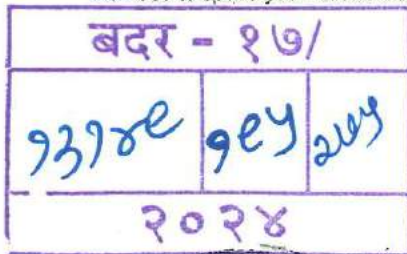 बदर - १७/
१३१४९ १९५
२०२४